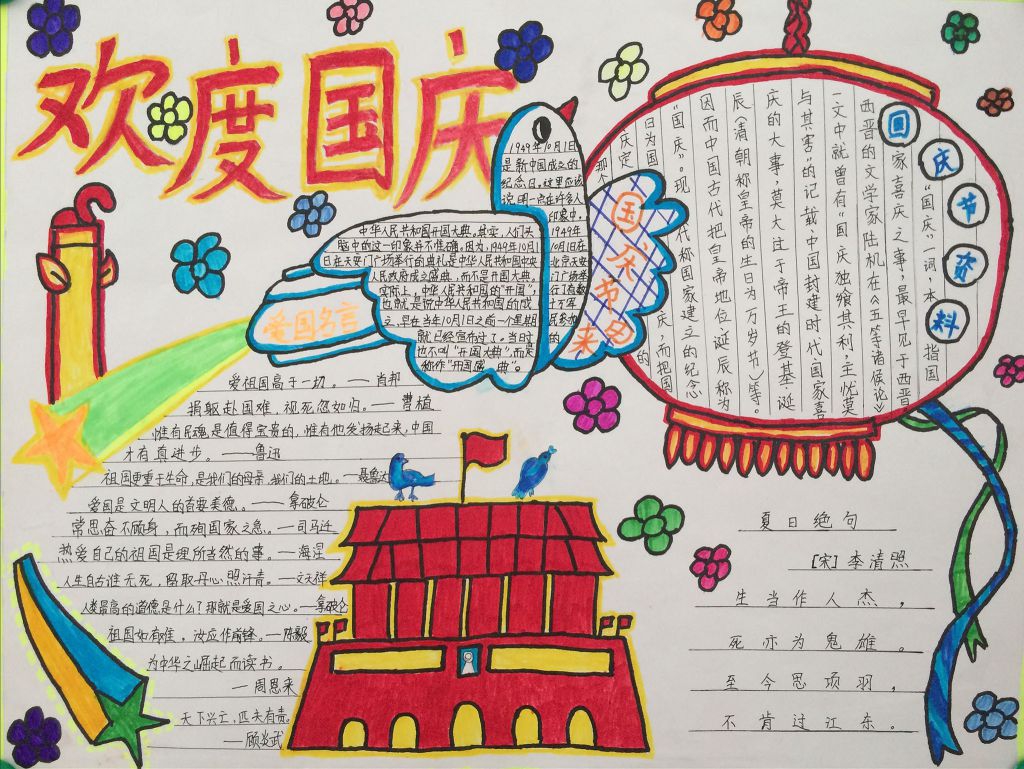 欢度国庆
1949年10月1日
是新中国成立的
纪念日。这里应该
说明一点在许多人
印象中，
1949年
10月1日在
北京天安
门广场举
行了有数
十万军
民参加
的
中华人民共和国开国大典。其实，人们头
脑中的这一印象并不准确。因为，1949年10月1
日在天安门广场举行的典礼是中华人民共和国中央
人民政府成立盛典，而不是开国大典。
实际上，中华人民共和国的“开国”，
也就是说中华人民共和国的成
立，早在当年10月1日之前一个星期
就已经宣布过了。当时
也不叫“开国大典”，而是
称作“开国盛典”。
国庆节的
来
国庆节资料
“国庆”一词，本指国
家喜庆之事，最早见于西晋
西晋的文学家陆机在《五等诸侯论》
一文中就曾有“国庆独飨其利，主忧莫
与其害”的记载、中国封建时代、国家喜
庆的大事，莫大过于帝王的登基、诞
辰（清朝称皇帝的生日为万岁节）等。
因而中国古代把皇帝地位、诞辰称为
“国庆”。现代称国家建立的纪念
日为国庆，而把国
庆定
那个
的
爱国名言
爱祖国高于一切。——肖邦
捐躯赴国难，视死忽如归。——曹植
惟有民魂是值得宝贵的，惟有他发扬起来，中国
才有真进步。——鲁迅
祖国更重于生命，是我们的母亲，我们的土地。——聂鲁达
爱国是文明人的首要美德。——拿破仑
常思奋不顾身，而殉国家之急。——司马迁
热爱自己的祖国是理所当然的事。——海涅
人生自古谁无死，留取丹心照汗青。——文天祥
人类最高的道德是什么？那就是爱国之心。——拿破仑
祖国如有难，汝应作前锋。——陈毅
为中华之崛起而读书。
——周恩来
天下兴亡，匹夫有责。
——顾炎武
夏日绝句
[宋]李清照
生当作人杰，
死亦为鬼雄。
至今思项羽，
不肯过江东。